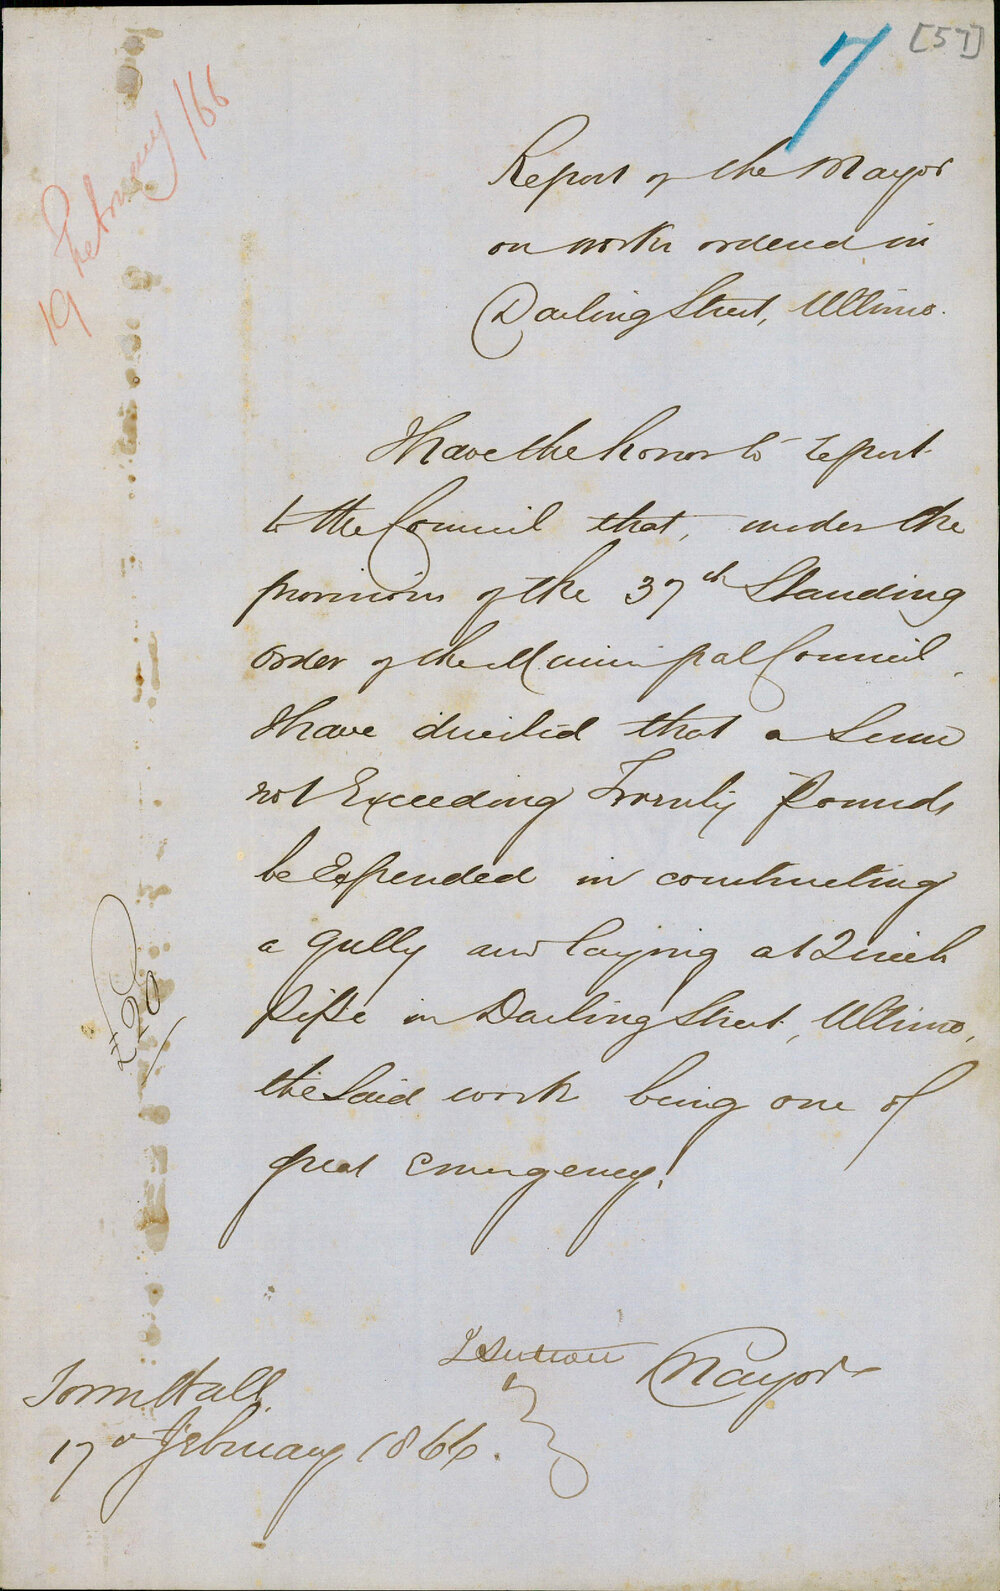 7
[57]
19 February /66
Report of the Mayor
on works ordered in
Darling Street, Ultimo.
I have the honor to report
to the Council that, under the
provisions of the 37th Standing
order of the Municipal Council,
I have directed that a Sum
not Exceeding Twenty Pounds
be Expended in constructing
a gully and laying a 12 inch
pipe in Darling Street, Ultimo,
the said work being one of
great Emergency!
£20
£20
J Sutton Mayor
Town Hall
17th February 1866.